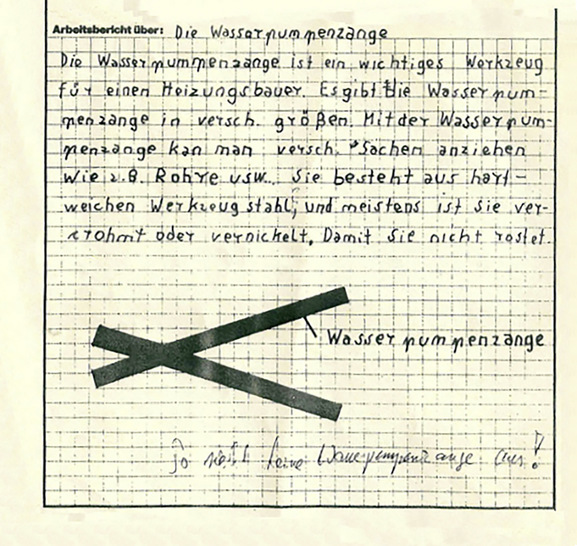 Arbeitsbericht über: Die Wasserpumpenzange
Die Wasserpumpenzange ist ein wichtiges Werkzeug
für einen Heizungsbauer. Es gibt die Wasserpum-
penzange in versch. größen. Mit der Wasserpum-
penzange kan man versch. Sachen anziehen
wie z.B. Rohre usw.. Sie besteht aus hart-
weichen Werkzeugstahl, und meistens ist sie ver-
crohmt oder vernickelt, Damit sie nicht rostet.
Wasserpumpenzange
So sieht keine Wasserpumpenzange aus!